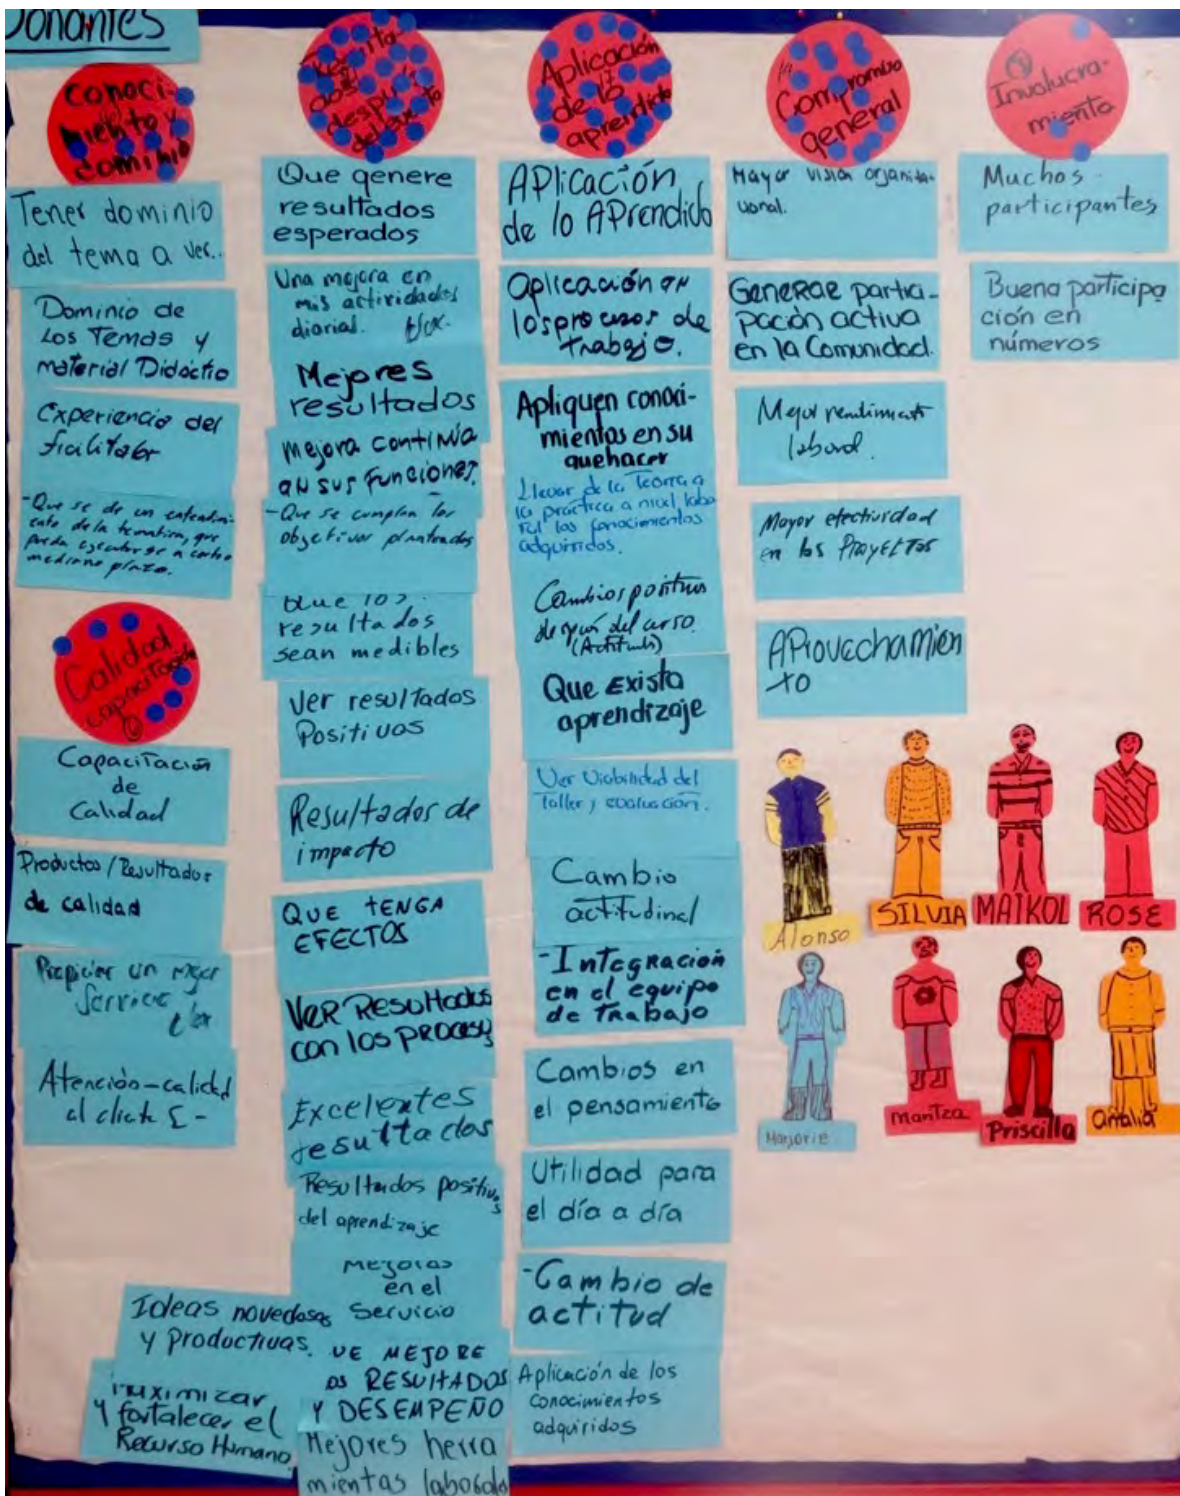 Donantes
Conoci-
miento y
dominio
Tener dominio
del tema a ver..
Dominio de
Los Temas y
material Didáctio
Experiencia del
facilitador
-Que se de un entendimi-
ento de la tematica, que
pueda ejecutarse a corto
mediano plazo.
Calidad
capacitación
Capacitación
de
Calidad
Productos/Resultados
de calidad
Propiciar un mejor
Servicio
Atención-calidad
al cliente
después
Que genere
resultados
esperados
Una mejora en
mis actividades
diarias.
Mejores
resultados
mejora continua
en sus funciones.
-Que se cumplan los
objetivos planteados
Que los
resultados
sean medibles
Ver resultados
Positivos
Resultados de
impacto
QUE TENGA
EFECTOS
VER RESULTADOS
con los procesos
Excelentes
resultados
Resultados positivos
del aprendizaje
Mejoras
en el
Servicio
Ideas novedosas
y Productivas.
UE MEJORE
OS RESULTADOS
Y DESEMPEÑO
maximizar
y fortalecer el
Recurso Humano.
Mejores herra
mientas
Aplicación
de lo
aprendido
APlicación
de lo APrendido
Aplicación en
los procesos de
trabajo.
Apliquen conoci-
mientos en su
quehacer
Llevar de la Teoría a
la práctica a nivel labo
ral los conocimientos
adquiridos.
Cambios positivos
después del curso.
(Actitud)
Que Exista
aprendizaje
Ver Viabilidad del
Taller y evaluación.
Cambio
actitudinal
-Integración
en el equipo
de trabajo
Cambios en
el pensamiento
Utilidad para
el día a día
-Cambio de
actitud
Aplicación de los
conocimientos
adquiridos
Compromiso
general
Mayor visión organiza-
cional.
Generar partici-
pación activa
en la Comunidad.
Mejor rendimiento
laboral.
Mayor efectividad
en los Proyectos
APROVechamien
to
Involucra-
miento
Muchos
participantes
Buena participa
ción en
números
Alonso
SILVIA
MAIKOL
ROSE
Marjorie
Maritza
Priscilla
Amalia